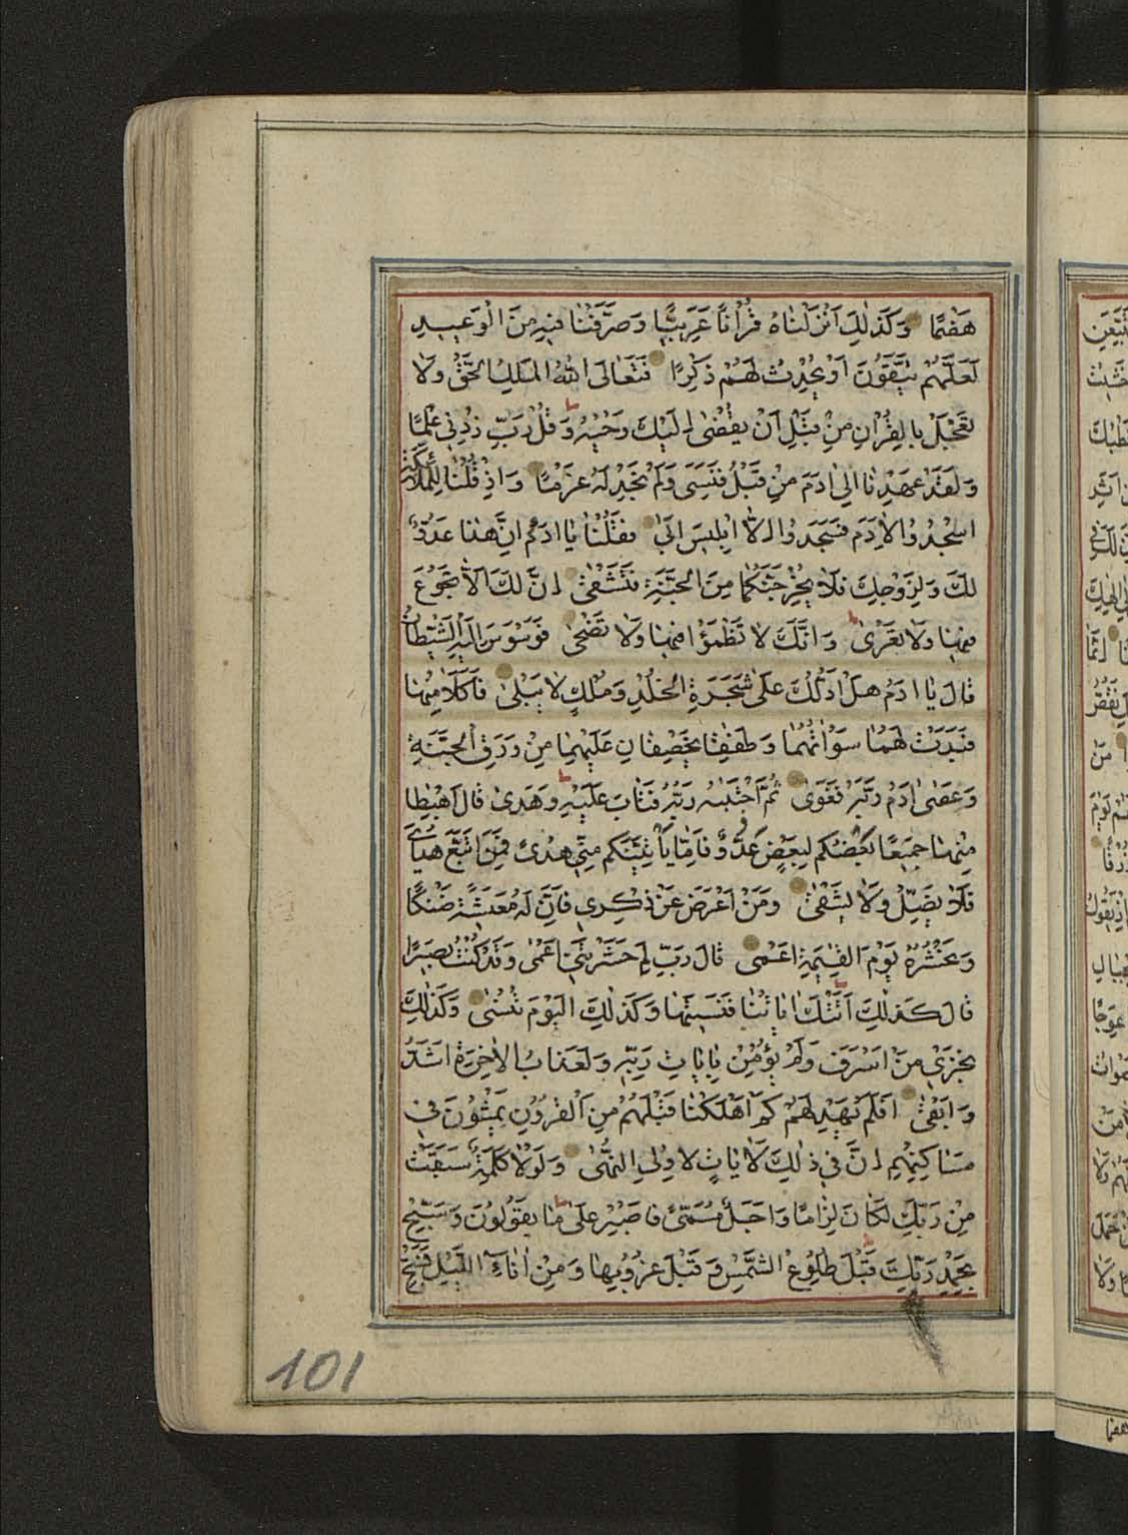 هَضْمًا وَكَذٰلِكَ اَنْزَلْنَاهُ قُرْاٰنًا عَرَبِيًّا وَصَرَّفْنَا فِيهِ مِنَ الْوَعِيدِ
لَعَلَّهُمْ يَتَّقُونَ اَوْ يُحْدِثُ لَهُمْ ذِكْرًا فَتَعَالَى اللّٰهُ الْمَلِكُ الْحَقُّ وَلَا
تَعْجَلْ بِالْقُرْاٰنِ مِنْ قَبْلِ اَنْ يُقْضٰى اِلَيْكَ وَحْيُهُ وَقُلْ رَبِّ زِدْنِي عِلْمًا
وَلَقَدْ عَهِدْنَا اِلٰى اٰدَمَ مِنْ قَبْلُ فَنَسِيَ وَلَمْ نَجِدْ لَهُ عَزْمًا وَاِذْ قُلْنَا لِلْمَلٰئِكَةِ
اسْجُدُوا لِاٰدَمَ فَسَجَدُوا اِلَّا اِبْلِيسَ اَبٰى فَقُلْنَا يَا اٰدَمُ اِنَّ هٰذَا عَدُوٌّ
لَكَ وَلِزَوْجِكَ فَلَا يُخْرِجَنَّكُمَا مِنَ الْجَنَّةِ فَتَشْقٰى اِنَّ لَكَ اَلَّا تَجُوعَ
فِيهَا وَلَا تَعْرٰى وَاَنَّكَ لَا تَظْمَؤُا فِيهَا وَلَا تَضْحٰى فَوَسْوَسَ اِلَيْهِ الشَّيْطَانُ
قَالَ يَا اٰدَمُ هَلْ اَدُلُّكَ عَلٰى شَجَرَةِ الْخُلْدِ وَمُلْكٍ لَا يَبْلٰى فَاَكَلَا مِنْهَا
فَبَدَتْ لَهُمَا سَوْاٰتُهُمَا وَطَفِقَا يَخْصِفَانِ عَلَيْهِمَا مِنْ وَرَقِ الْجَنَّةِ
وَعَصٰى اٰدَمُ رَبَّهُ فَغَوٰى ثُمَّ اجْتَبٰيهُ رَبُّهُ فَتَابَ عَلَيْهِ وَهَدٰى قَالَ اهْبِطَا
مِنْهَا جَمِيعًا بَعْضُكُمْ لِبَعْضٍ عَدُوٌّ فَاِمَّا يَاْتِيَنَّكُمْ مِنِّي هُدًى فَمَنِ اتَّبَعَ هُدَايَ
فَلَا يَضِلُّ وَلَا يَشْقٰى وَمَنْ اَعْرَضَ عَنْ ذِكْرِي فَاِنَّ لَهُ مَعِيشَةً ضَنْكًا
وَنَحْشُرُهُ يَوْمَ الْقِيٰمَةِ اَعْمٰى قَالَ رَبِّ لِمَ حَشَرْتَنِي اَعْمٰى وَقَدْ كُنْتُ بَصِيرًا
قَالَ كَذٰلِكَ اَتَتْكَ اٰيَاتُنَا فَنَسِيتَهَا وَكَذٰلِكَ الْيَوْمَ تُنْسٰى وَكَذٰلِكَ
نَجْزِي مَنْ اَسْرَفَ وَلَمْ يُؤْمِنْ بِاٰيَاتِ رَبِّهِ وَلَعَذَابُ الْاٰخِرَةِ اَشَدُّ
وَاَبْقٰى اَفَلَمْ يَهْدِ لَهُمْ كَمْ اَهْلَكْنَا قَبْلَهُمْ مِنَ الْقُرُونِ يَمْشُونَ فِي
مَسَاكِنِهِمْ اِنَّ فِي ذٰلِكَ لَاٰيَاتٍ لِاُولِي النُّهٰى وَلَوْلَا كَلِمَةٌ سَبَقَتْ
مِنْ رَبِّكَ لَكَانَ لِزَامًا وَاَجَلٌ مُسَمًّى فَاصْبِرْ عَلٰى مَا يَقُولُونَ وَسَبِّحْ
بِحَمْدِ رَبِّكَ قَبْلَ طُلُوعِ الشَّمْسِ وَقَبْلَ غُرُوبِهَا وَمِنْ اٰنَاۤئِ الَّيْلِ فَسَبِّحْ
101